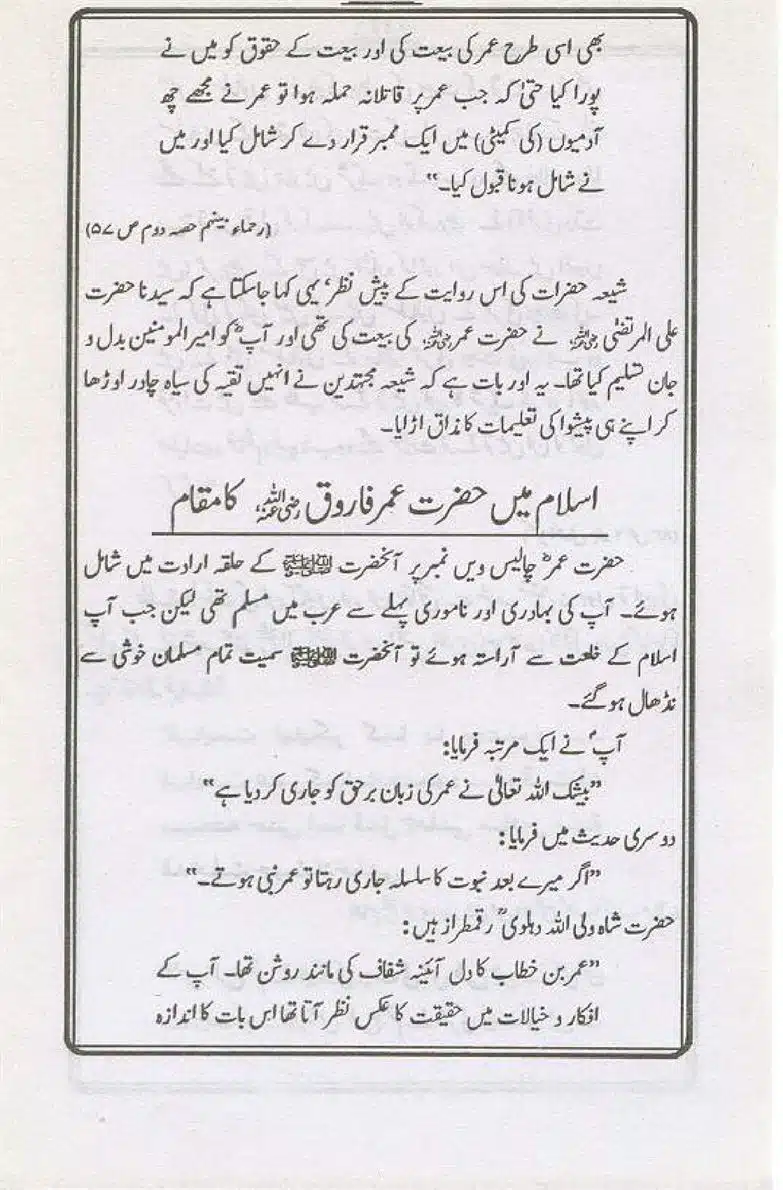 بھی اسی طرح عمر کی بیعت کی اور بیعت کے حقوق کو میں نے
پورا کیا حتیٰ کہ جب عمر پر قاتلانہ حملہ ہوا تو عمر نے مجھے چھ
آدمیوں (کی کمیٹی) میں ایک ممبر قرار دے کر شامل کیا اور میں
نے شامل ہونا قبول کیا۔"
(رحماء بینہم حصہ دوم ص ۵۷)
شیعہ حضرات کی اس روایت کے پیش نظر' یہی کہا جاسکتا ہے کہ سیدنا حضرت
علی المرتضیٰ رضی اللہ عنہ نے حضرت عمر رضی اللہ عنہ کی بیعت کی تھی اور آپؓ کو امیر المومنین بدل و
جان تسلیم کیا تھا۔ یہ اور بات ہے کہ شیعہ مجتہدین نے انہیں تقیہ کی سیاہ چادر اوڑھا
کر اپنے ہی پیشوا کی تعلیمات کا مذاق اڑایا۔
اسلام میں حضرت عمر فاروق رضی اللہ عنہ کا مقام
حضرت عمرؓ چالیس ویں نمبر پر آنحضرت ﷺ کے حلقہ ارادت میں شامل
ہوئے۔ آپ کی بہادری اور ناموری پہلے سے عرب میں مسلم تھی لیکن جب آپ
اسلام کے خلعت سے آراستہ ہوئے تو آنحضرت ﷺ سمیت تمام مسلمان خوشی سے
نڈھال ہو گئے۔
آپؐ نے ایک مرتبہ فرمایا:
"بیشک اللہ تعالیٰ نے عمر کی زبان پر حق کو جاری کر دیا ہے"
دوسری حدیث میں فرمایا:
"اگر میرے بعد نبوت کا سلسلہ جاری رہتا تو عمر نبی ہوتے۔"
حضرت شاہ ولی اللہ دہلویؒ رقمطراز ہیں:
"عمر بن خطاب کا دل آئینہ شفاف کی مانند روشن تھا۔ آپ کے
افکار و خیالات میں حقیقت کا عکس نظر آتا تھا اس بات کا اندازہ